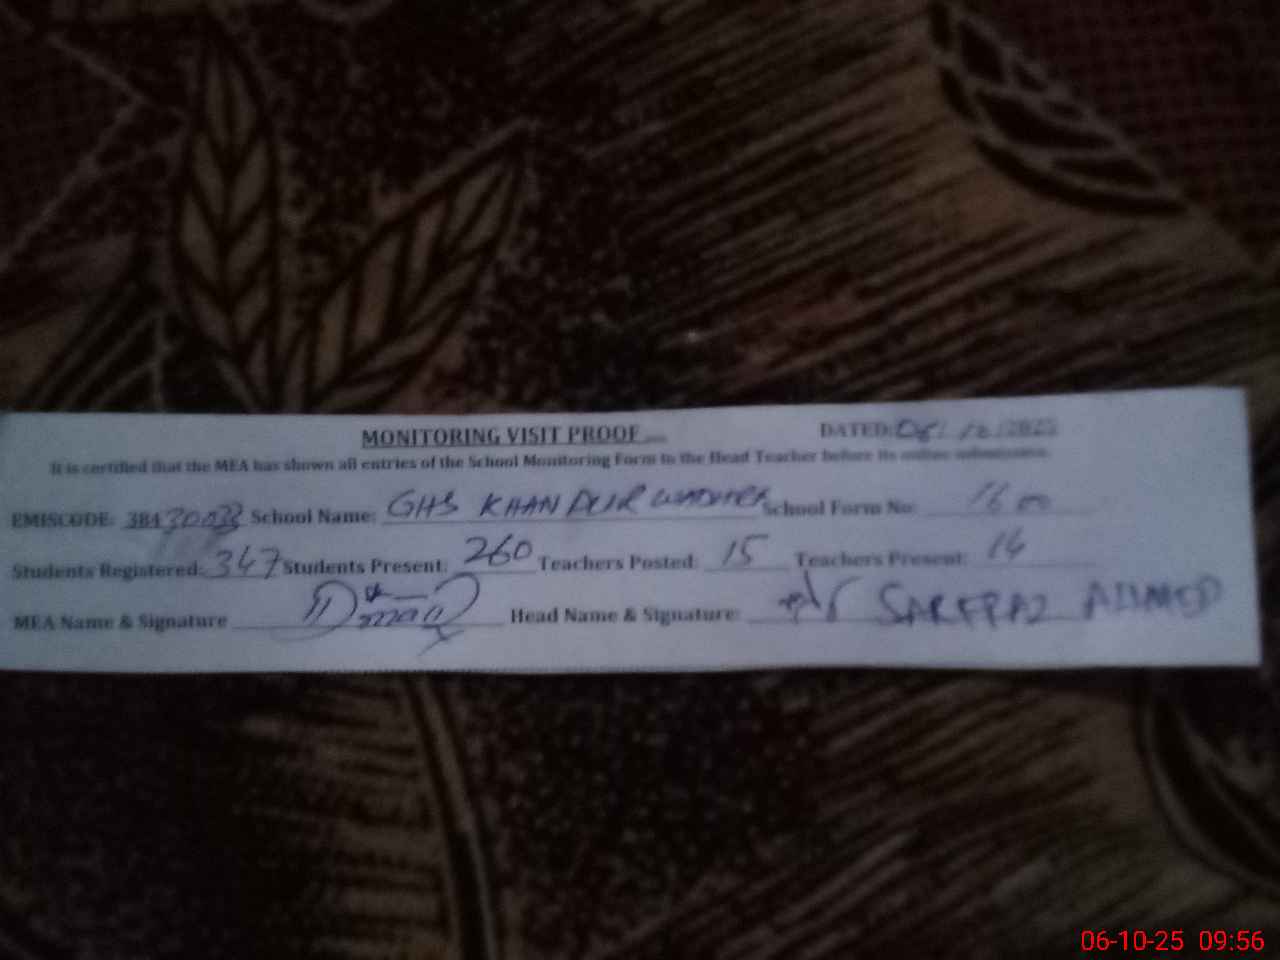 MONITORING VISIT PROOF
DATED: 06/10/2025
It is certified that the MEA has shown all entries of the School Monitoring Form to the Head Teacher before its online submission.
EMISCODE: 38430033 School Name: GHS KHAN PUR School Form No: 1600
Students Registered: 347 Students Present: 260 Teachers Posted: 15 Teachers Present: 14
MEA Name & Signature Head Name & Signature: SARFRAZ AHMED
06-10-25 09:56